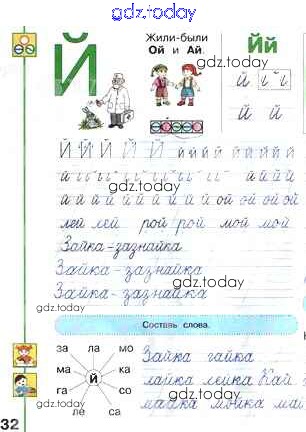 gdz.today
Й
Жили-были
Ой и Ай.
Йй
й
й й
gdz.today
Й Й Й Й Й й й й й й й й й й
gdz.today
й й й й й й й й й ой ой ой ой
лей лей рой рой мой мой
Зайка-зазнайка
gdz.today
Зайка-зазнайка
Зайка-зазнайка
gdz.today
Составь слова.
за ла мо
ма й ка
га со
ле са
Зайка гайка
лайка лейка Кай
майка мойка май
gdz.today
32